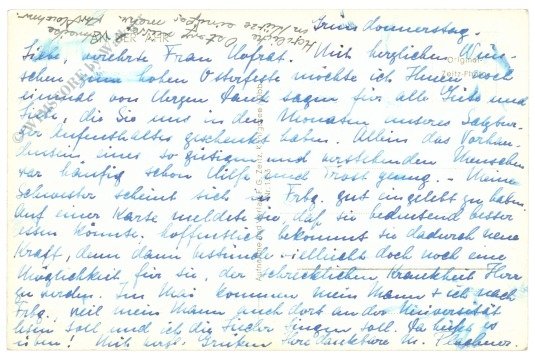 Gründonnerstag.
Liebe, verehrte Frau Hofrat. Mit herzlichen Wün-
schen zum hohen Osterfeste möchte ich Ihnen noch
einmal von Herzen Dank sagen für alle Güte und
Liebe, die Sie uns in den Monaten unseres Salzbur-
ger Aufenthaltes geschenkt haben. Allein das Vorhan-
densein eines so gütigen und verstehenden Menschen
war häufig schon Hilfe und Trost genug. - Meine
Schwester scheint sich in Frbg. gut eingelebt zu haben.
Auf einer Karte meldete sie, daß sie bedeutend besser
essen könnte. Hoffentlich bekommt sie dadurch neue
Kraft, denn dann bestünde vielleicht doch noch eine
Möglichkeit für sie, der schrecklichen Krankheit Herr
zu werden. Im Mai kommen mein Mann + ich nach
Frbg., weil mein Mann auch dort an der Universität
lesen soll und ich die Lieder singen soll. Da heißt es
üben! Mit herzl. Grüßen Ihre dankbare